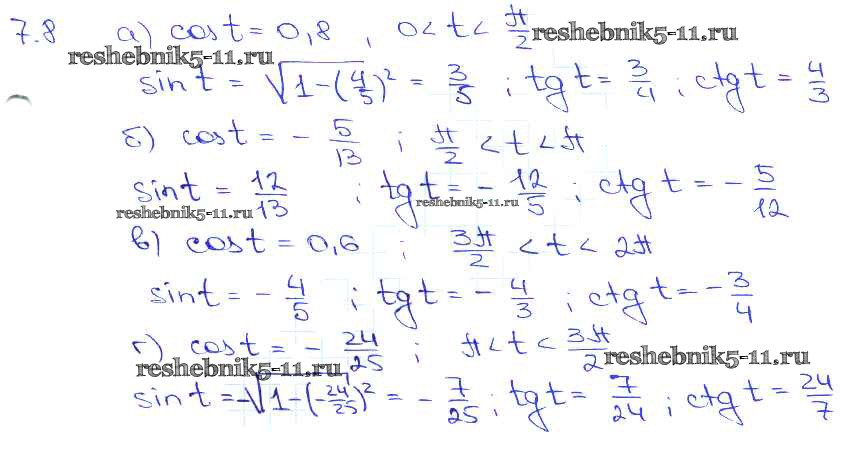 7.8 а) cos t = 0,8 , 0 < t < π/2 reshebnik5-11.ru
reshebnik5-11.ru
sin t = √(1-(4/5)²) = 3/5 ; tg t = 3/4 ; ctg t = 4/3
б) cos t = - 5/13 ; π/2 < t < π
sin t = 12/13 ; tg t = - 12/5 ; ctg t = - 5/12
reshebnik5-11.ru reshebnik5-11.ru
в) cos t = 0,6 ; 3π/2 < t < 2π
sin t = - 4/5 ; tg t = - 4/3 ; ctg t = - 3/4
г) cos t = - 24/25 ; π < t < 3π/2 reshebnik5-11.ru
reshebnik5-11.ru
sin t = -√(1-(-24/25)²) = - 7/25 ; tg t = 7/24 ; ctg t = 24/7